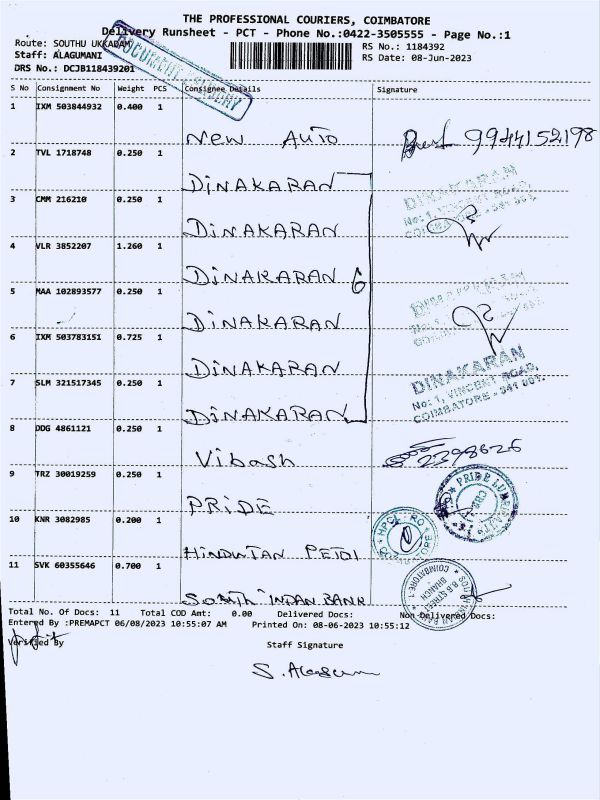 THE PROFESSIONAL COURIERS, COIMBATORE
Delivery Runsheet - PCT - Phone No.:0422-3505555 - Page No.:1
Route: SOUTHU UKKADAM
RS No.: 1184392
Staff: ALAGUMANI
RS Date: 08-Jun-2023
DRS No.: DCJB118439201
DOCUMENT
S No Consignment No Weight PCS Consignee Details Signature
1 IXM 503844932 0.400 1
New Auto 9944152198
2 TVL 1718748 0.250 1
DINAKARAN
3 CMM 216210 0.250 1
DINAKARAN
DINAKARAN
No: 1, VINCENT ROAD,
COIMBATORE - 641 001.
4 VLR 3852207 1.260 1
DINAKARAN 6
5 MAA 102893577 0.250 1
DINAKARAN
6 IXM 503783151 0.725 1
DINAKARAN
DINAKARAN
No: 1, VINCENT ROAD,
COIMBATORE - 641 001.
7 SLM 321517345 0.250 1
DINAKARAN
8 DDG 4861121 0.250 1
Vibash 2398626
9 TRZ 30019259 0.250 1
PRIDE
PRIDE
CBE
10 KNR 3082985 0.200 1
HINDUTAN PETOL
HPCL - RO
11 SVK 60355646 0.700 1
SOUTH INDAN BANK
COIMBATORE
BRANCH
Total No. Of Docs: 11 Total COD Amt: 0.00 Delivered Docs: Non-Delivered Docs:
Entered By :PREMAPCT 06/08/2023 10:55:07 AM Printed On: 08-06-2023 10:55:12
Verified By Staff Signature
S. Alagumani